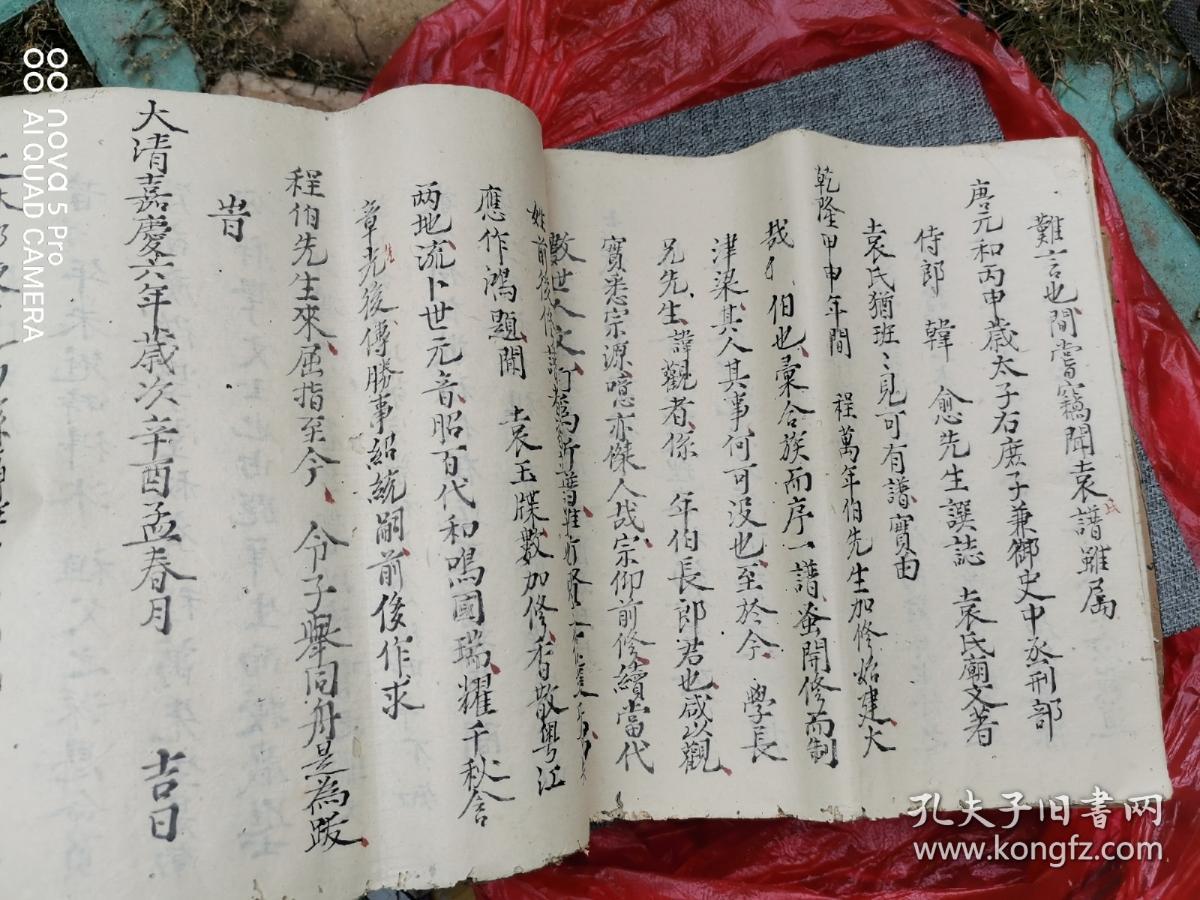 難言也間嘗竊聞袁氏譜雖属
唐元和丙申歲太子右庶子兼御史中丞刑部
侍郎 韓 愈先生譔誌 袁氏廟文著
袁氏猶班〻見可有譜實由
乾隆甲申年間 程萬年伯先生加修始建大
哉 伯也彙合族而序一譜蚤開修而制
津梁其人其事何可没也至於今 學長
兄先生諱觀者係 年伯長郎君也咸以觀
寳悉宗源噫亦傑人哉宗仰前修續當代
數世人文
姓前後作譜
應作鴻題開 袁玉牒數加修者敬粤江
两地流卜世元音昭百代和鳴國瑞耀千秋含
章光後傳勝事紹統嗣前後作求
程伯先生來屈指至今 令子舉同舟是為跋
旹
大清嘉慶六年歲次辛酉孟春月 吉日
nova 5 Pro
AI QUAD CAMERA
孔夫子旧書网
www.kongfz.com